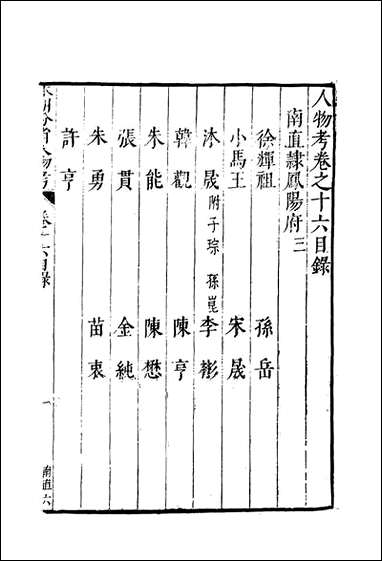 人物考卷之十六目錄
南直隸鳳陽府三
徐輝祖 孫岳
小馬王 宋晟
沐晟附子琮 孫崑 李彬
韓觀 陳亨
朱能 陳懋
張貫 金純
朱勇 苗衷
許亨
本朝分省人物考 卷十六目錄 一 南直六